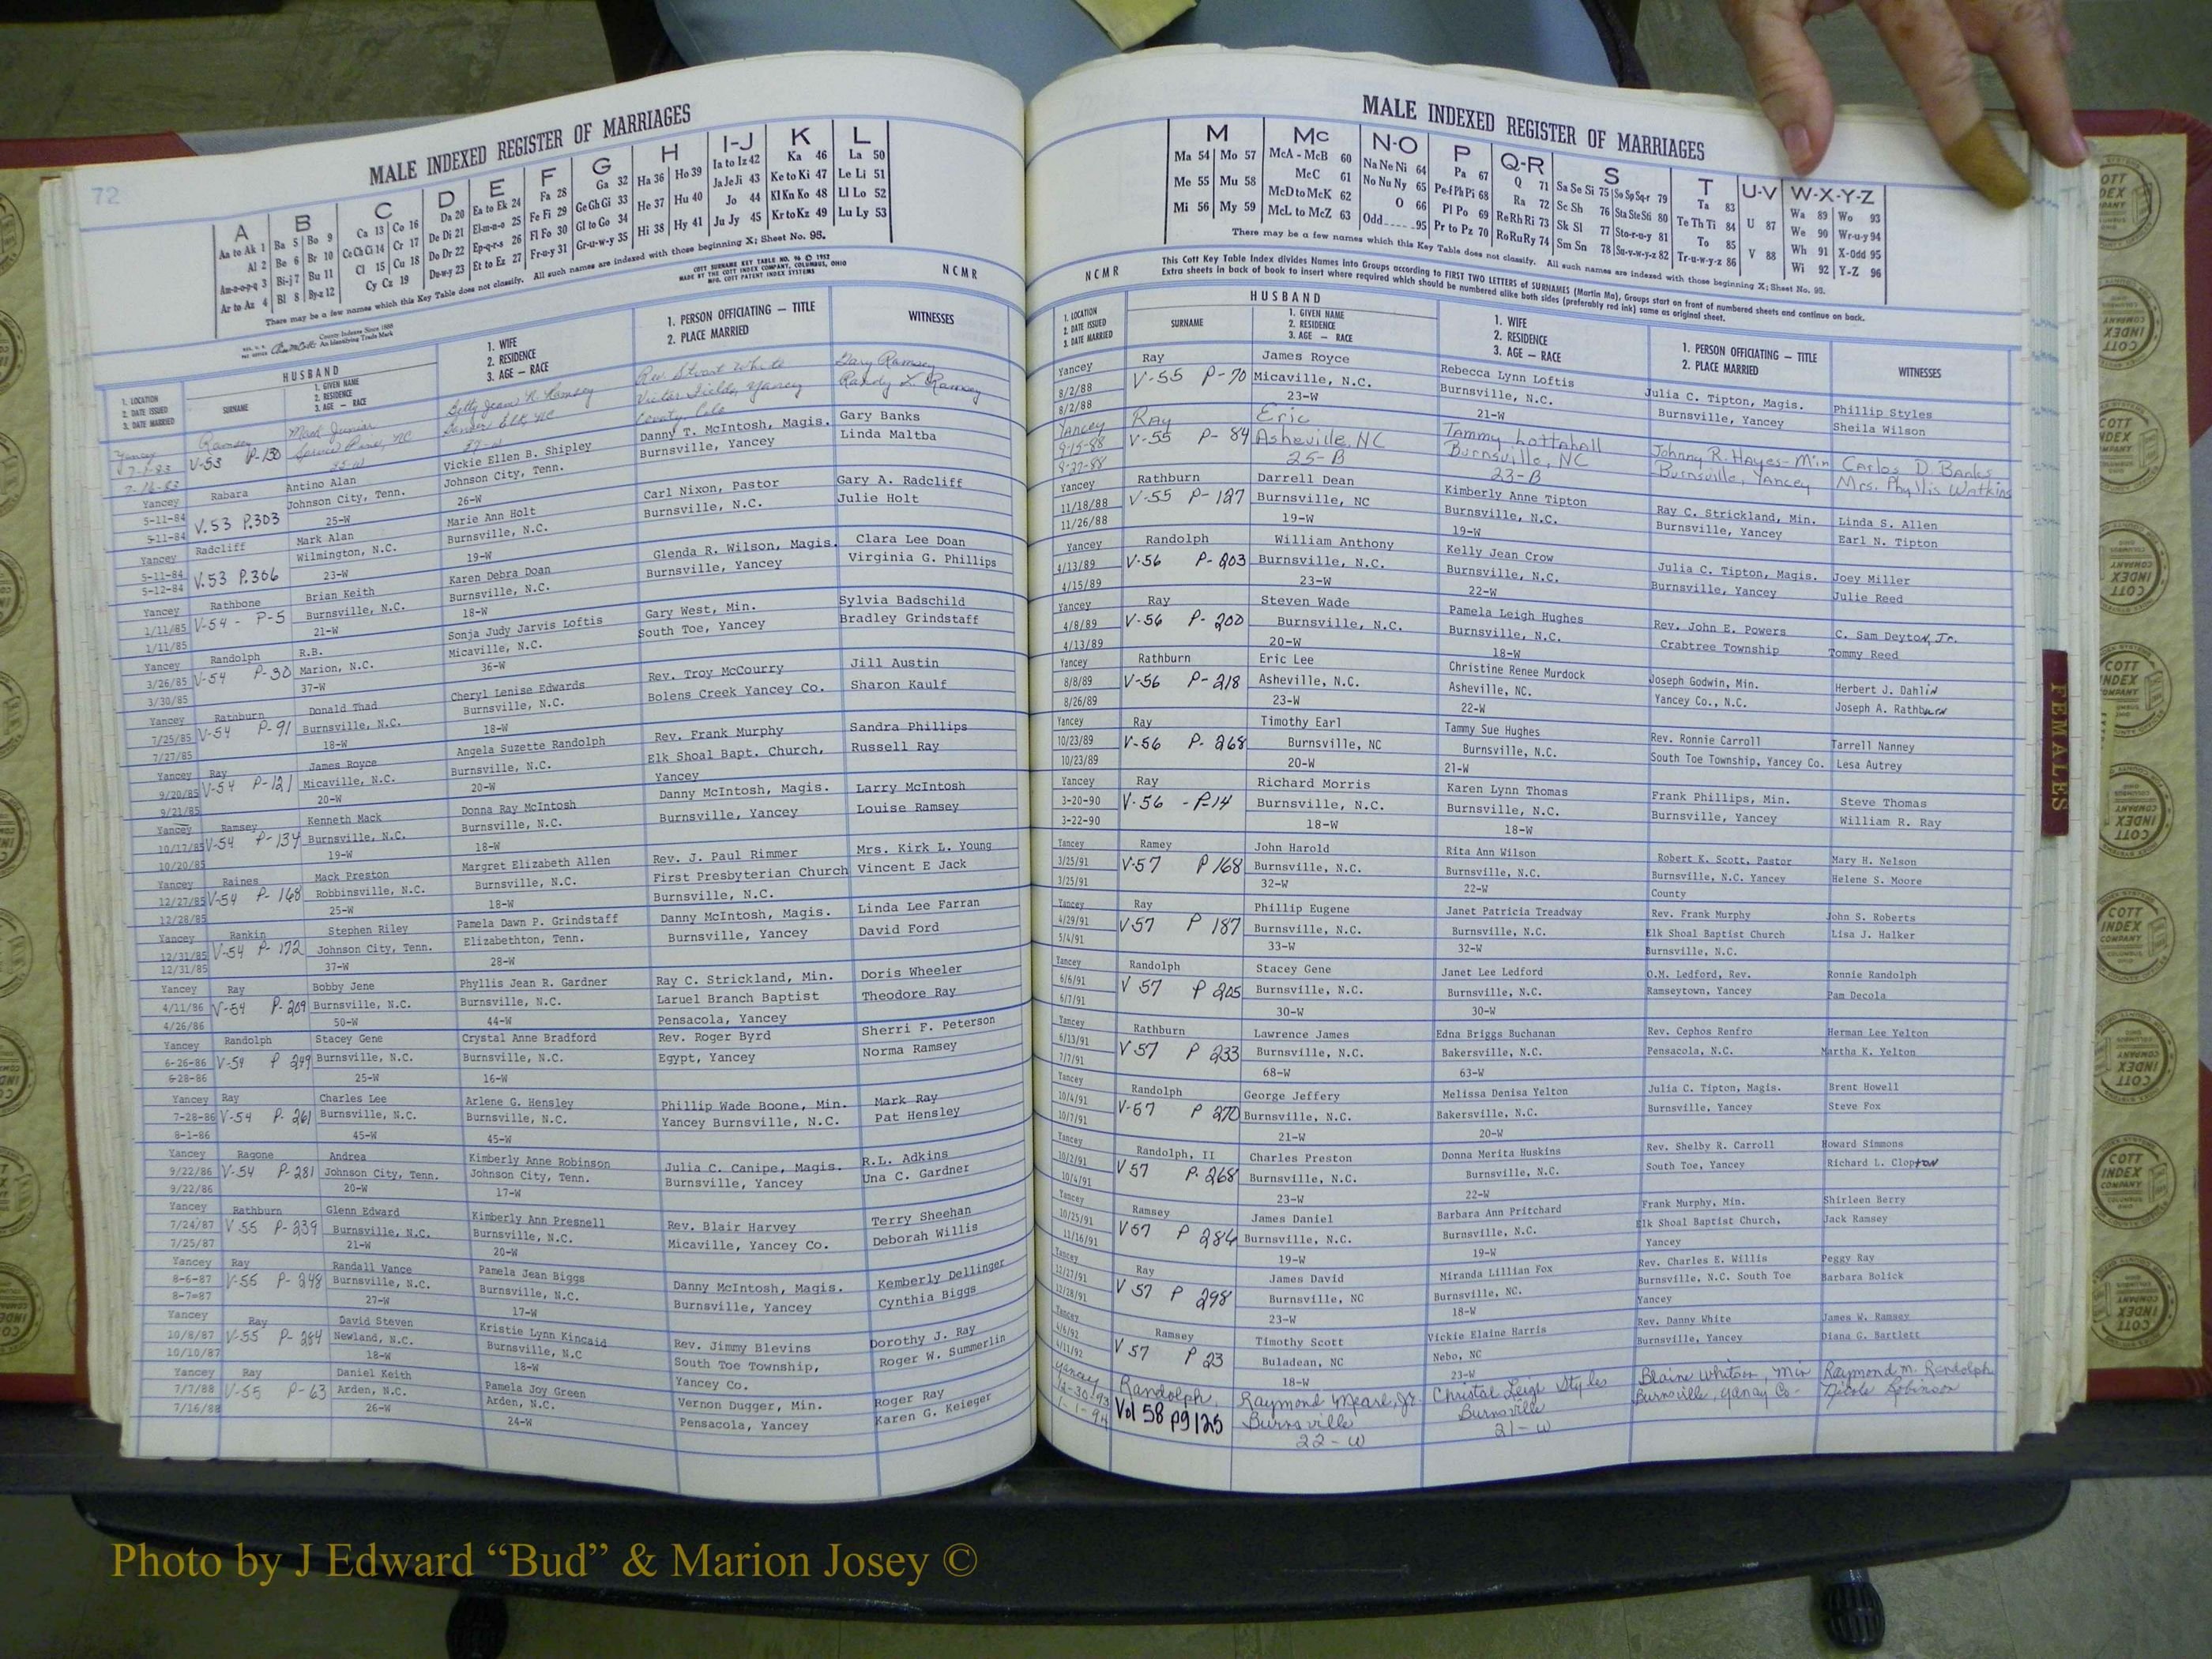 72
MALE INDEXED REGISTER OF MARRIAGES
A B C D E F G H I-J K L
Aa to Ak 1 Ba 5 Bo 9 Ca 13 Co 16 Da 20 Ea to Ek 24 Fa 28 Ga 32 Ha 36 Ho 39 Ia to Iz 42 Ka 46 La 50
Al 2 Be 6 Br 10 Ce Ch Ci 14 Cr 17 De Di 21 El-m-n-o 25 Fe Fi 29 Ge Gh Gi 33 He 37 Hu 40 Ja Je Ji 43 Ke to Ki 47 Le Li 51
Am-n-o-p-q 3 Bi-j 7 Bu 11 Cl 15 Cu 18 Do Dr 22 Ep-q-r-s 26 Fl Fo 30 Gl to Go 34 Hi 38 Hy 41 Jo 44 Kl Kn Ko 48 Ll Lo 52
Ar to Az 4 Bl 8 By-z 12 Cy Cz 19 Du-w-y 23 Et to Ez 27 Fr-u-y 31 Gr-u-w-y 35 Ju Jy 45 Kr to Kz 49 Lu Ly 53
There may be a few names which this Key Table does not classify. All such names are indexed with those beginning X; Sheet No. 95.
County Indexes Since 1888
An Identifying Trade Mark
COTT SURNAME KEY TABLE NO. 96 © 1952
MADE BY THE COTT INDEX COMPANY, COLUMBUS, OHIO
MFG. COTT PATENT INDEX SYSTEMS
NCMR
1. LOCATION
2. DATE ISSUED
3. DATE MARRIED
HUSBAND
SURNAME
1. GIVEN NAME
2. RESIDENCE
3. AGE — RACE
1. WIFE
2. RESIDENCE
3. AGE — RACE
1. PERSON OFFICIATING — TITLE
2. PLACE MARRIED
WITNESSES
Yancey Ramsey Mack Junior Betty Jean N. Ramsey Rev. Stuart White Gary Ramsey
7-1-83 V-53 P-130 Spruce Pine, NC NC Yancey Randy L. Ramsey
7-16-83 County
Yancey Rabara Antino Alan Vickie Ellen B. Shipley Danny T. McIntosh, Magis. Gary Banks
5-11-84 V.53 P.303 Johnson City, Tenn. Johnson City, Tenn. Burnsville, Yancey Linda Maltba
5-11-84 25-W 26-W
Yancey Radcliff Mark Alan Marie Ann Holt Carl Nixon, Pastor Gary A. Radcliff
5-11-84 V.53 P.306 Wilmington, N.C. Burnsville, N.C. Burnsville, N.C. Julie Holt
5-12-84 23-W 19-W
Yancey Rathbone Brian Keith Karen Debra Doan Glenda R. Wilson, Magis. Clara Lee Doan
1/11/85 V-54 - P-5 Burnsville, N.C. Burnsville, N.C. Burnsville, Yancey Virginia G. Phillips
1/11/85 21-W 18-W
Yancey Randolph R.B. Sonja Judy Jarvis Loftis Gary West, Min. Sylvia Badschild
3/26/85 V-54 P-30 Marion, N.C. Micaville, N.C. South Toe, Yancey Bradley Grindstaff
3/30/85 37-W 36-W
Yancey Rathburn Donald Thad Cheryl Lenise Edwards Rev. Troy McCourry Jill Austin
7/25/85 V-54 P-91 Burnsville, N.C. Burnsville, N.C. Bolens Creek Yancey Co. Sharon Kaulf
7/27/85 18-W 18-W
Yancey Ray James Royce Angela Suzette Randolph Rev. Frank Murphy Sandra Phillips
9/20/85 V-54 P-121 Micaville, N.C. Burnsville, N.C. Elk Shoal Bapt. Church, Russell Ray
9/21/85 20-W 20-W Yancey
Yancey Ramsey Kenneth Mack Donna Ray McIntosh Danny McIntosh, Magis. Larry McIntosh
10/17/85 V-54 P-134 Burnsville, N.C. Burnsville, N.C. Burnsville, Yancey Louise Ramsey
10/20/85 19-W 18-W
Yancey Raines Mack Preston Margret Elizabeth Allen Rev. J. Paul Rimmer Mrs. Kirk L. Young
12/27/85 V-54 P-168 Robbinsville, N.C. Burnsville, N.C. First Presbyterian Church Vincent E Jack
12/28/85 25-W 18-W Burnsville, N.C.
Yancey Rankin Stephen Riley Pamela Dawn P. Grindstaff Danny McIntosh, Magis. Linda Lee Farran
12/31/85 V-54 P-172 Johnson City, Tenn. Elizabethton, Tenn. Burnsville, Yancey David Ford
12/31/85 37-W 28-W
Yancey Ray Bobby Jene Phyllis Jean R. Gardner Ray C. Strickland, Min. Doris Wheeler
4/11/86 V-54 P-209 Burnsville, N.C. Burnsville, N.C. Laruel Branch Baptist Theodore Ray
4/26/86 50-W 44-W Pensacola, Yancey
Yancey Randolph Stacey Gene Crystal Anne Bradford Rev. Roger Byrd Sherri F. Peterson
6-26-86 V-54 P 249 Burnsville, N.C. Burnsville, N.C. Egypt, Yancey Norma Ramsey
6-28-86 25-W 16-W
Yancey Ray Charles Lee Arlene G. Hensley Phillip Wade Boone, Min. Mark Ray
7-28-86 V-54 P. 261 Burnsville, N.C. Burnsville, N.C. Yancey Burnsville, N.C. Pat Hensley
8-1-86 45-W 45-W
Yancey Ragone Andrea Kimberly Anne Robinson Julia C. Canipe, Magis. R.L. Adkins
9/22/86 V-54 P-281 Johnson City, Tenn. Johnson City, Tenn. Burnsville, Yancey Una C. Gardner
9/22/86 20-W 17-W
Yancey Rathburn Glenn Edward Kimberly Ann Presnell Rev. Blair Harvey Terry Sheehan
7/24/87 V 55 P-239 Burnsville, N.C. Burnsville, N.C. Micaville, Yancey Co. Deborah Willis
7/25/87 21-W 20-W
Yancey Ray Randall Vance Pamela Jean Biggs Danny McIntosh, Magis. Kemberly Dellinger
8-6-87 V-55 P-248 Burnsville, N.C. Burnsville, N.C. Burnsville, Yancey Cynthia Biggs
8-7-87 27-W 17-W
Yancey Ray David Steven Kristie Lynn Kincaid Rev. Jimmy Blevins Dorothy J. Ray
10/8/87 V-55 P-284 Newland, N.C. Burnsville, N.C South Toe Township, Roger W. Summerlin
10/10/87 18-W 18-W Yancey Co.
Yancey Ray Daniel Keith Pamela Joy Green Vernon Dugger, Min. Roger Ray
7/7/88 V-55 P-63 Arden, N.C. Arden, N.C. Pensacola, Yancey Karen G. Keieger
7/16/88 26-W 24-W
MALE INDEXED REGISTER OF MARRIAGES
M Mc N-O P Q-R S T U-V W-X-Y-Z
Ma 54 Mo 57 McA - McB 60 Na Ne Ni 64 Pa 67 Q 71 Sa Se Si 75 So Sp Sq-r 79 Ta 83 U 87 Wa 89 Wo 93
Me 55 Mu 58 McC 61 No Nu Ny 65 Pe-f Ph Pi 68 Ra 72 Sc Sh 76 Sta Ste Sti 80 Te Th Ti 84 V 88 We 90 Wr-u-y 94
Mi 56 My 59 McD to McK 62 O 66 Pl Po 69 Re Rh Ri 73 Sk Sl 77 Sto-r-u-y 81 To 85 Wh 91 X-odd 95
McL to McZ 63 Odd 95 Pr to Pz 70 Ro Ru Ry 74 Sm Sn 78 Su-v-w-y-z 82 Tr-u-w-y-z 86 Wi 92 Y-Z 96
There may be a few names which this Key Table does not classify. All such names are indexed with those beginning X; Sheet No. 95.
NCMR
This Cott Key Table Index divides Names into Groups according to FIRST TWO LETTERS of SURNAMES (Martin Ma), Groups start on front of numbered sheets and continue on back.
Extra sheets in back of book to insert where required which should be numbered alike both sides (preferably red ink) same as original sheet.
1. LOCATION
2. DATE ISSUED
3. DATE MARRIED
HUSBAND
SURNAME
1. GIVEN NAME
2. RESIDENCE
3. AGE — RACE
1. WIFE
2. RESIDENCE
3. AGE — RACE
1. PERSON OFFICIATING — TITLE
2. PLACE MARRIED
WITNESSES
Yancey Ray James Royce Rebecca Lynn Loftis Julia C. Tipton, Magis. Phillip Styles
8/2/88 V-55 P-70 Micaville, N.C. Burnsville, N.C. Burnsville, Yancey Sheila Wilson
8/2/88 23-W 21-W
Yancey Ray Eric Tammy Lottahall Johnny R. Hayes-Min Carlos D. Banks
9-15-88 V-55 P-84 Asheville, NC Burnsville, NC Burnsville, Yancey Mrs. Phyllis Watkins
9-27-88 25-B 23-B
Yancey Rathburn Darrell Dean Kimberly Anne Tipton Ray C. Strickland, Min. Linda S. Allen
11/18/88 V-55 P-127 Burnsville, NC Burnsville, N.C. Burnsville, Yancey Earl N. Tipton
11/26/88 19-W 19-W
Yancey Randolph William Anthony Kelly Jean Crow Julia C. Tipton, Magis. Joey Miller
4/13/89 V-56 P-203 Burnsville, N.C. Burnsville, N.C. Burnsville, Yancey Julie Reed
4/15/89 23-W 22-W
Yancey Ray Steven Wade Pamela Leigh Hughes Rev. John E. Powers C. Sam Deyton, Jr.
4/8/89 V-56 P-200 Burnsville, N.C. Burnsville, N.C. Crabtree Township Tommy Reed
4/13/89 20-W 18-W
Yancey Rathburn Eric Lee Christine Renee Murdock Joseph Godwin, Min. Herbert J. Dahlin
8/8/89 V-56 P-218 Asheville, N.C. Asheville, NC. Yancey Co., N.C. Joseph A. Rathburn
8/26/89 23-W 22-W
Yancey Ray Timothy Earl Tammy Sue Hughes Rev. Ronnie Carroll Tarrell Nanney
10/23/89 V-56 P-268 Burnsville, NC Burnsville, N.C. South Toe Township, Yancey Co. Lesa Autrey
10/23/89 20-W 21-W
Yancey Ray Richard Morris Karen Lynn Thomas Frank Phillips, Min. Steve Thomas
3-20-90 V-56 - P-14 Burnsville, N.C. Burnsville, N.C. Burnsville, Yancey William R. Ray
3-22-90 18-W 18-W
Yancey Ramey John Harold Rita Ann Wilson Robert K. Scott, Pastor Mary H. Nelson
3/25/91 V-57 P 168 Burnsville, N.C. Burnsville, N.C. Burnsville, N.C. Yancey Helene S. Moore
3/25/91 32-W 22-W County
Yancey Ray Phillip Eugene Janet Patricia Treadway Rev. Frank Murphy John S. Roberts
4/29/91 V 57 P 187 Burnsville, N.C. Burnsville, N.C. Elk Shoal Baptist Church Lisa J. Halker
5/4/91 33-W 32-W Burnsville, N.C.
Yancey Randolph Stacey Gene Janet Lee Ledford O.M. Ledford, Rev. Ronnie Randolph
6/6/91 V 57 P 205 Burnsville, N.C. Burnsville, N.C. Ramseytown, Yancey Pam Decola
6/7/91 30-W 30-W
Yancey Rathburn Lawrence James Edna Briggs Buchanan Rev. Cephos Renfro Herman Lee Yelton
6/13/91 V 57 P 233 Burnsville, N.C. Bakersville, N.C. Pensacola, N.C. Martha K. Yelton
7/7/91 68-W 63-W
Yancey Randolph George Jeffery Melissa Denisa Yelton Julia C. Tipton, Magis. Brent Howell
10/4/91 V-57 P 270 Burnsville, N.C. Bakersville, N.C. Burnsville, Yancey Steve Fox
10/7/91 21-W 20-W
Yancey Randolph, II Charles Preston Donna Merita Huskins Rev. Shelby R. Carroll Howard Simmons
10/2/91 V 57 P-268 Burnsville, N.C. Burnsville, N.C. South Toe, Yancey Richard L. Clopton
10/4/91 23-W 22-W
Yancey Ramsey James Daniel Barbara Ann Pritchard Frank Murphy, Min. Shirleen Berry
10/25/91 V 57 P 284 Burnsville, N.C. Burnsville, N.C. Elk Shoal Baptist Church, Jack Ramsey
11/16/91 19-W 19-W Yancey
Yancey Ray James David Miranda Lillian Fox Rev. Charles E. Willis Peggy Ray
12/27/91 V 57 P 298 Burnsville, NC Burnsville, NC. Burnsville, N.C. South Toe Barbara Bolick
12/28/91 23-W 18-W Yancey
Yancey Ramsey Timothy Scott Vickie Elaine Harris Rev. Danny White James W. Ramsey
4/6/92 V 57 P 23 Buladean, NC Nebo, NC Burnsville, Yancey Diana G. Bartlett
4/11/92 18-W 23-W
Yancey Randolph, Raymond Mearl, Jr. Christal Leigh Styles Blaine Whitson, Min Raymond M. Randolph
12-30-93 Vol 58 pg 125 Burnsville Burnsville Burnsville, Yancey Co- Nicole Robinson
1-1-94 22-W 21-W
FEMALES
COTT
INDEX
COMPANY
COLUMBUS
OHIO
Photo by J Edward “Bud” & Marion Josey ©